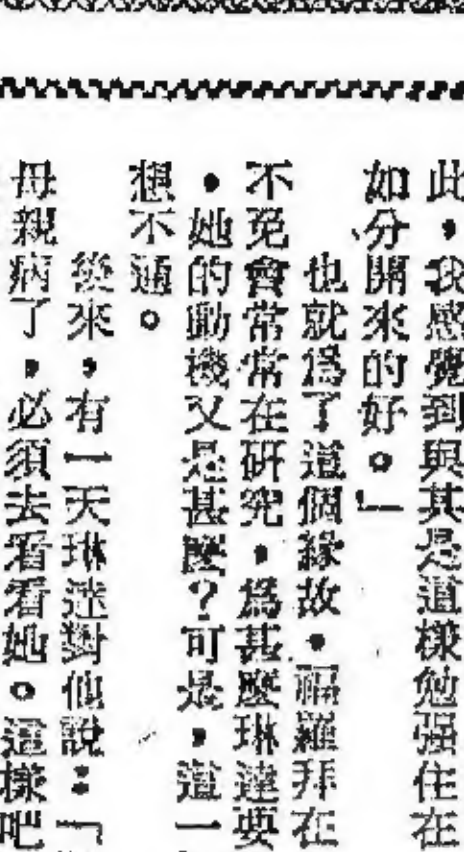 此，我感覺到與其是這樣勉强住在
如分開來的好。」
也就爲了這個緣故，福羅拜在
不免會常常在研究，爲甚麼琳達要
，她的動機又是甚麼？可是，這一
想不通。
後來，有一天琳達對他說：「
母親病了，必須去看看她。這樣吧